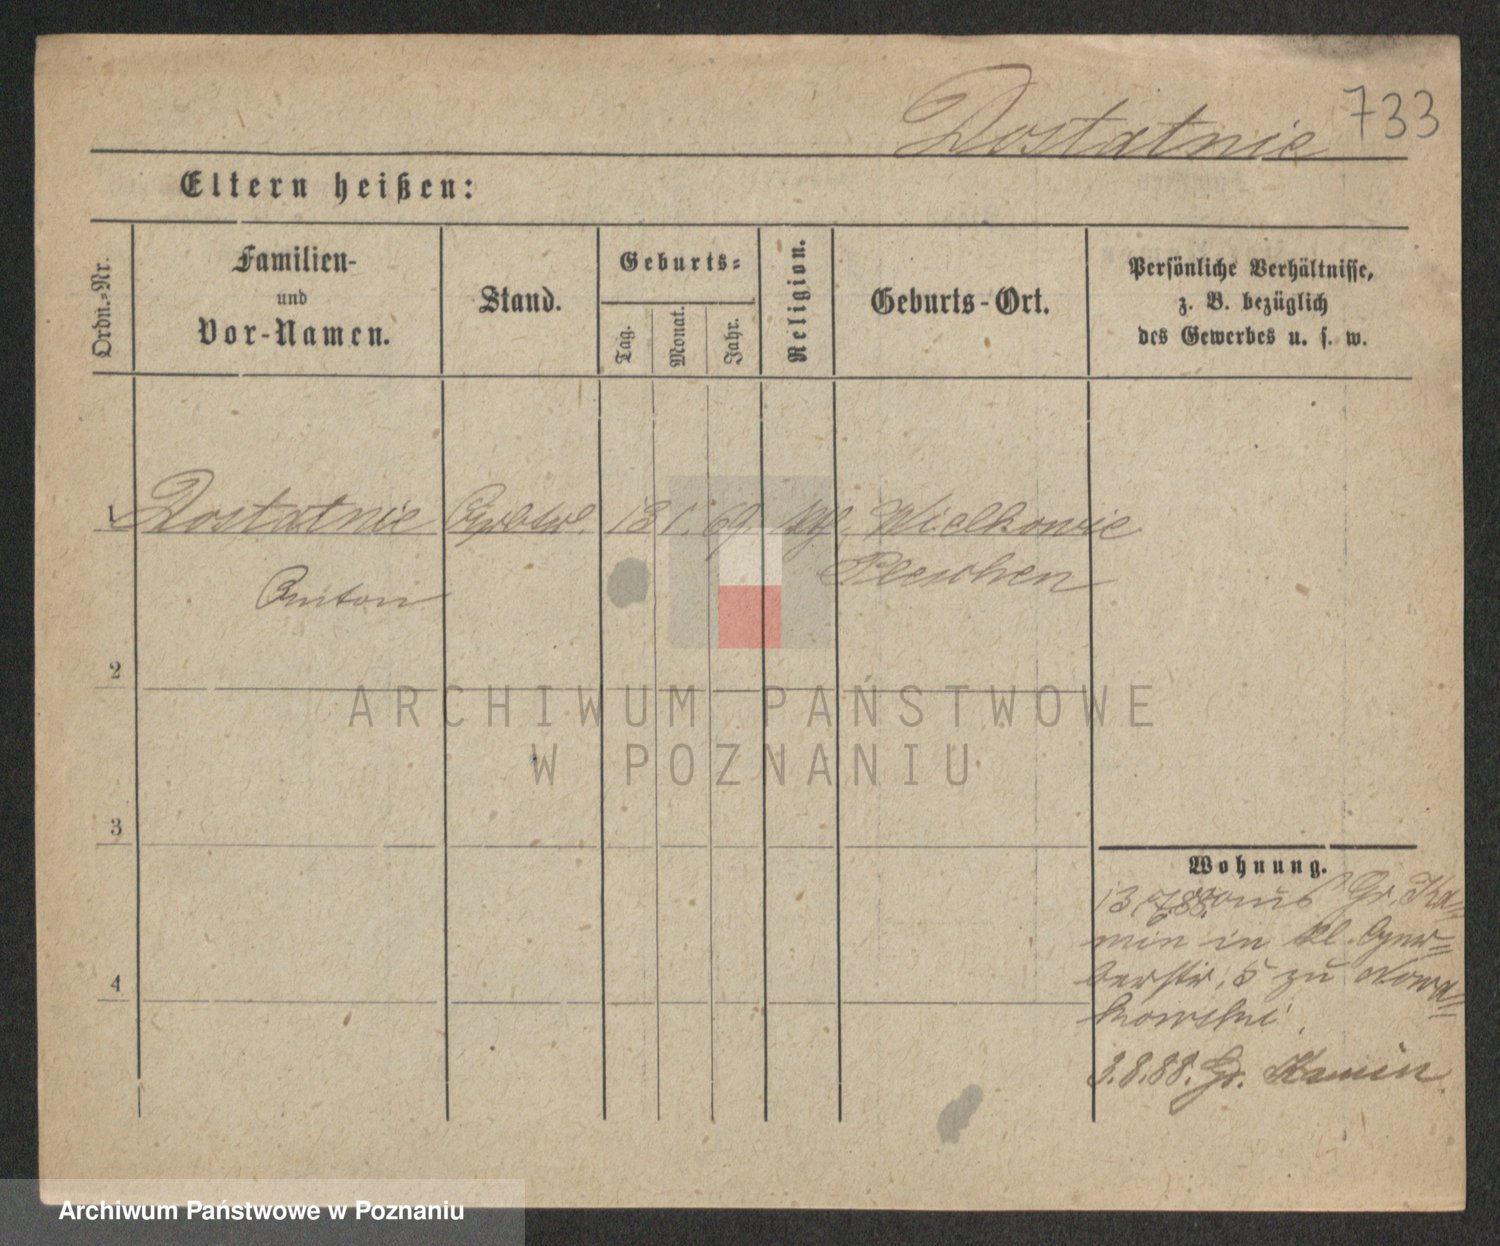 Dostatnie 733
Eltern heißen:
Ordn.-Nr.
Familien-
und
Vor-Namen.
Stand.
Geburts-
Tag.
Monat.
Jahr.
Religion.
Geburts-Ort.
Persönliche Verhältnisse,
z. B. bezüglich
des Gewerbes u. s. w.
1 Dostatnie 13 1. 69 Wielkowie
Pleschen
Anton
2
ARCHIWUM PAŃSTWOWE
W POZNANIU
3
4
Wohnung.
13/7.88. aus Gr. Ka=
min in Kl. Gerber=
berstr. 5 zu Nowa=
kowski
3.8.88. Gr. Kamin
Archiwum Państwowe w Poznaniu